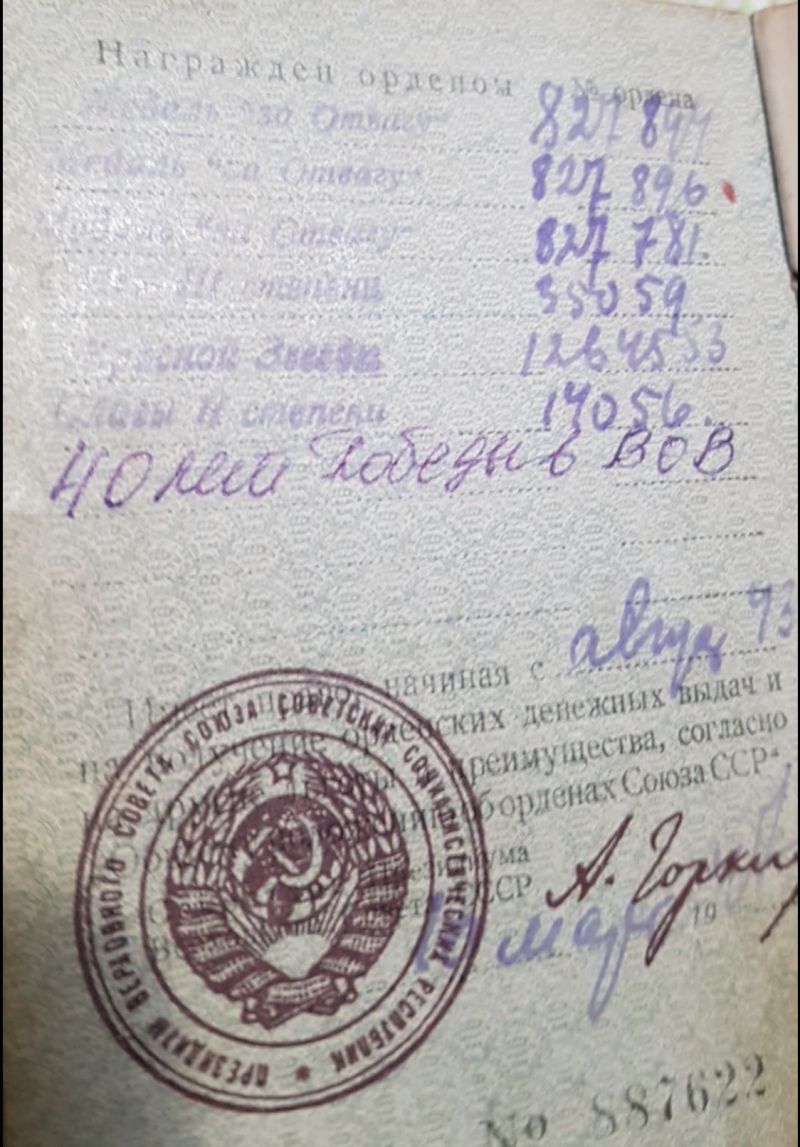 Награжден орденом № ордена
Медаль "за Отвагу" 827 8
Медаль "за Отвагу" 827 896
Медаль "за Отвагу" 827 781.
Славы III степени 35059
Красной Звезды 1264553
Славы II степени 14056.
40 лет Победы в ВОВ
начиная с август 43
на получение орденских денежных выдач и
преимущества, согласно
об орденах Союза ССР"
Президиума
ССР А. Горкин
март 19
ПРЕЗИДИУМ ВЕРХОВНОГО СОВЕТА СОЮЗА СОВЕТСКИХ СОЦИАЛИСТИЧЕСКИХ РЕСПУБЛИК
№ 887622